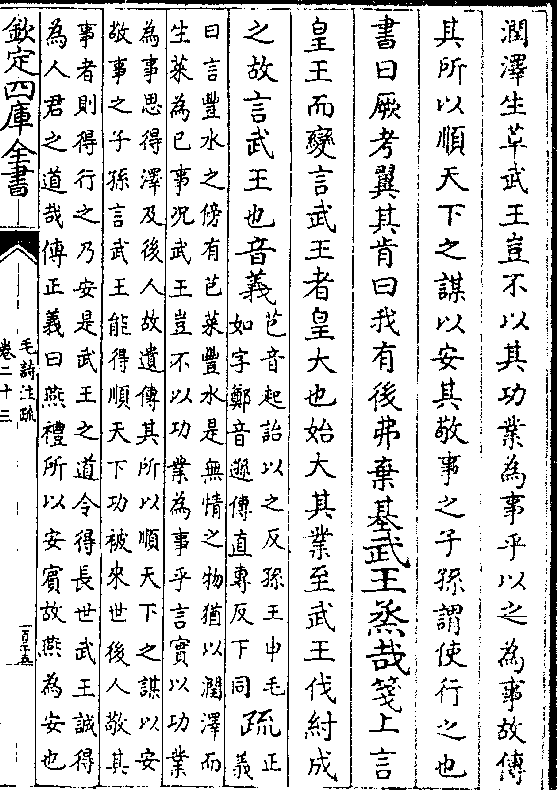 潤澤生草武王豈不以其功業為事乎以之為事故傳
其所以順天下之謀以安其敬事之子孫謂使行之也
書曰厥考翼其肯曰我有後弗棄基武王烝哉箋上言
皇王而變言武王者皇大也始大其業至武王伐紂成
之故言武王也音義
芑音起詒以之反孫王申毛
如字鄭音遜傳直專反下同
疏
正
義
曰言豐水之傍有芑菜豐水是無情之物猶以潤澤而
生菜為已事况武王豈不以功業為事乎言實以功業
為事思得澤及後人故遺傳其所以順天下之謀以安
敬事之子孫言武王能得順天下功被來世後人敬其
事者則得行之乃安是武王之道令得長世武王誠得
為人君之道哉傳正義曰燕禮所以安賓故燕為安也
欽定四庫全書
毛詩注疏
卷二十三